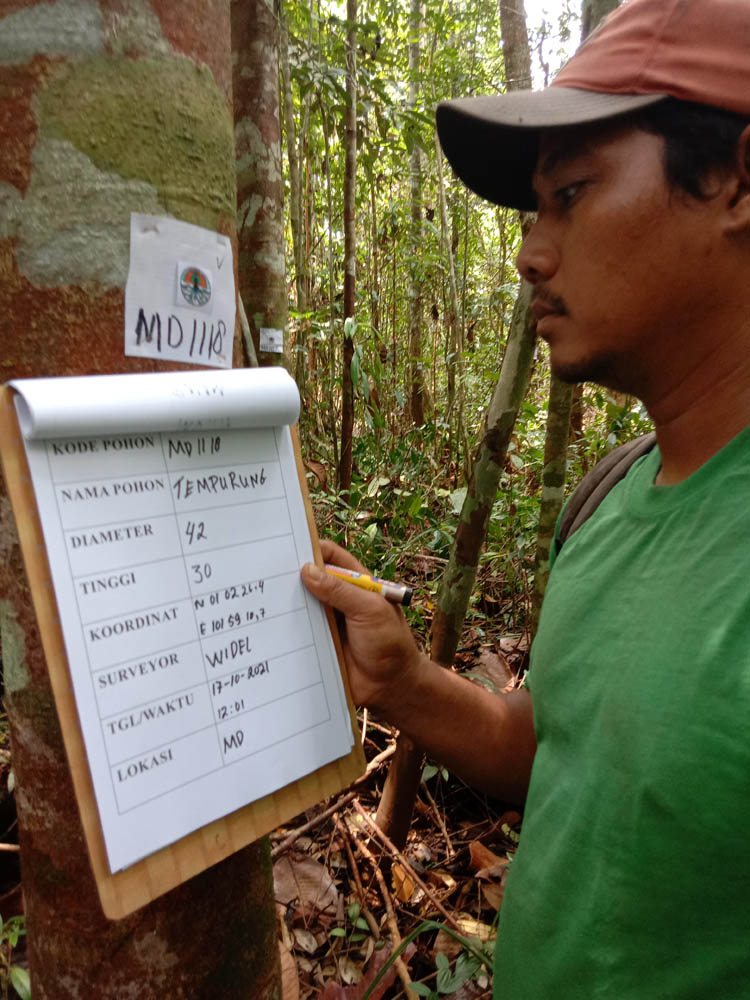 MD1118
KODE POHON MD1118
NAMA POHON TEMPURUNG
DIAMETER 42
TINGGI 30
KOORDINAT N 01 02 26.4
E 101 59 10,7
SURVEYOR WIDEL
TGL/WAKTU 17-10-2021
12:01
LOKASI MD